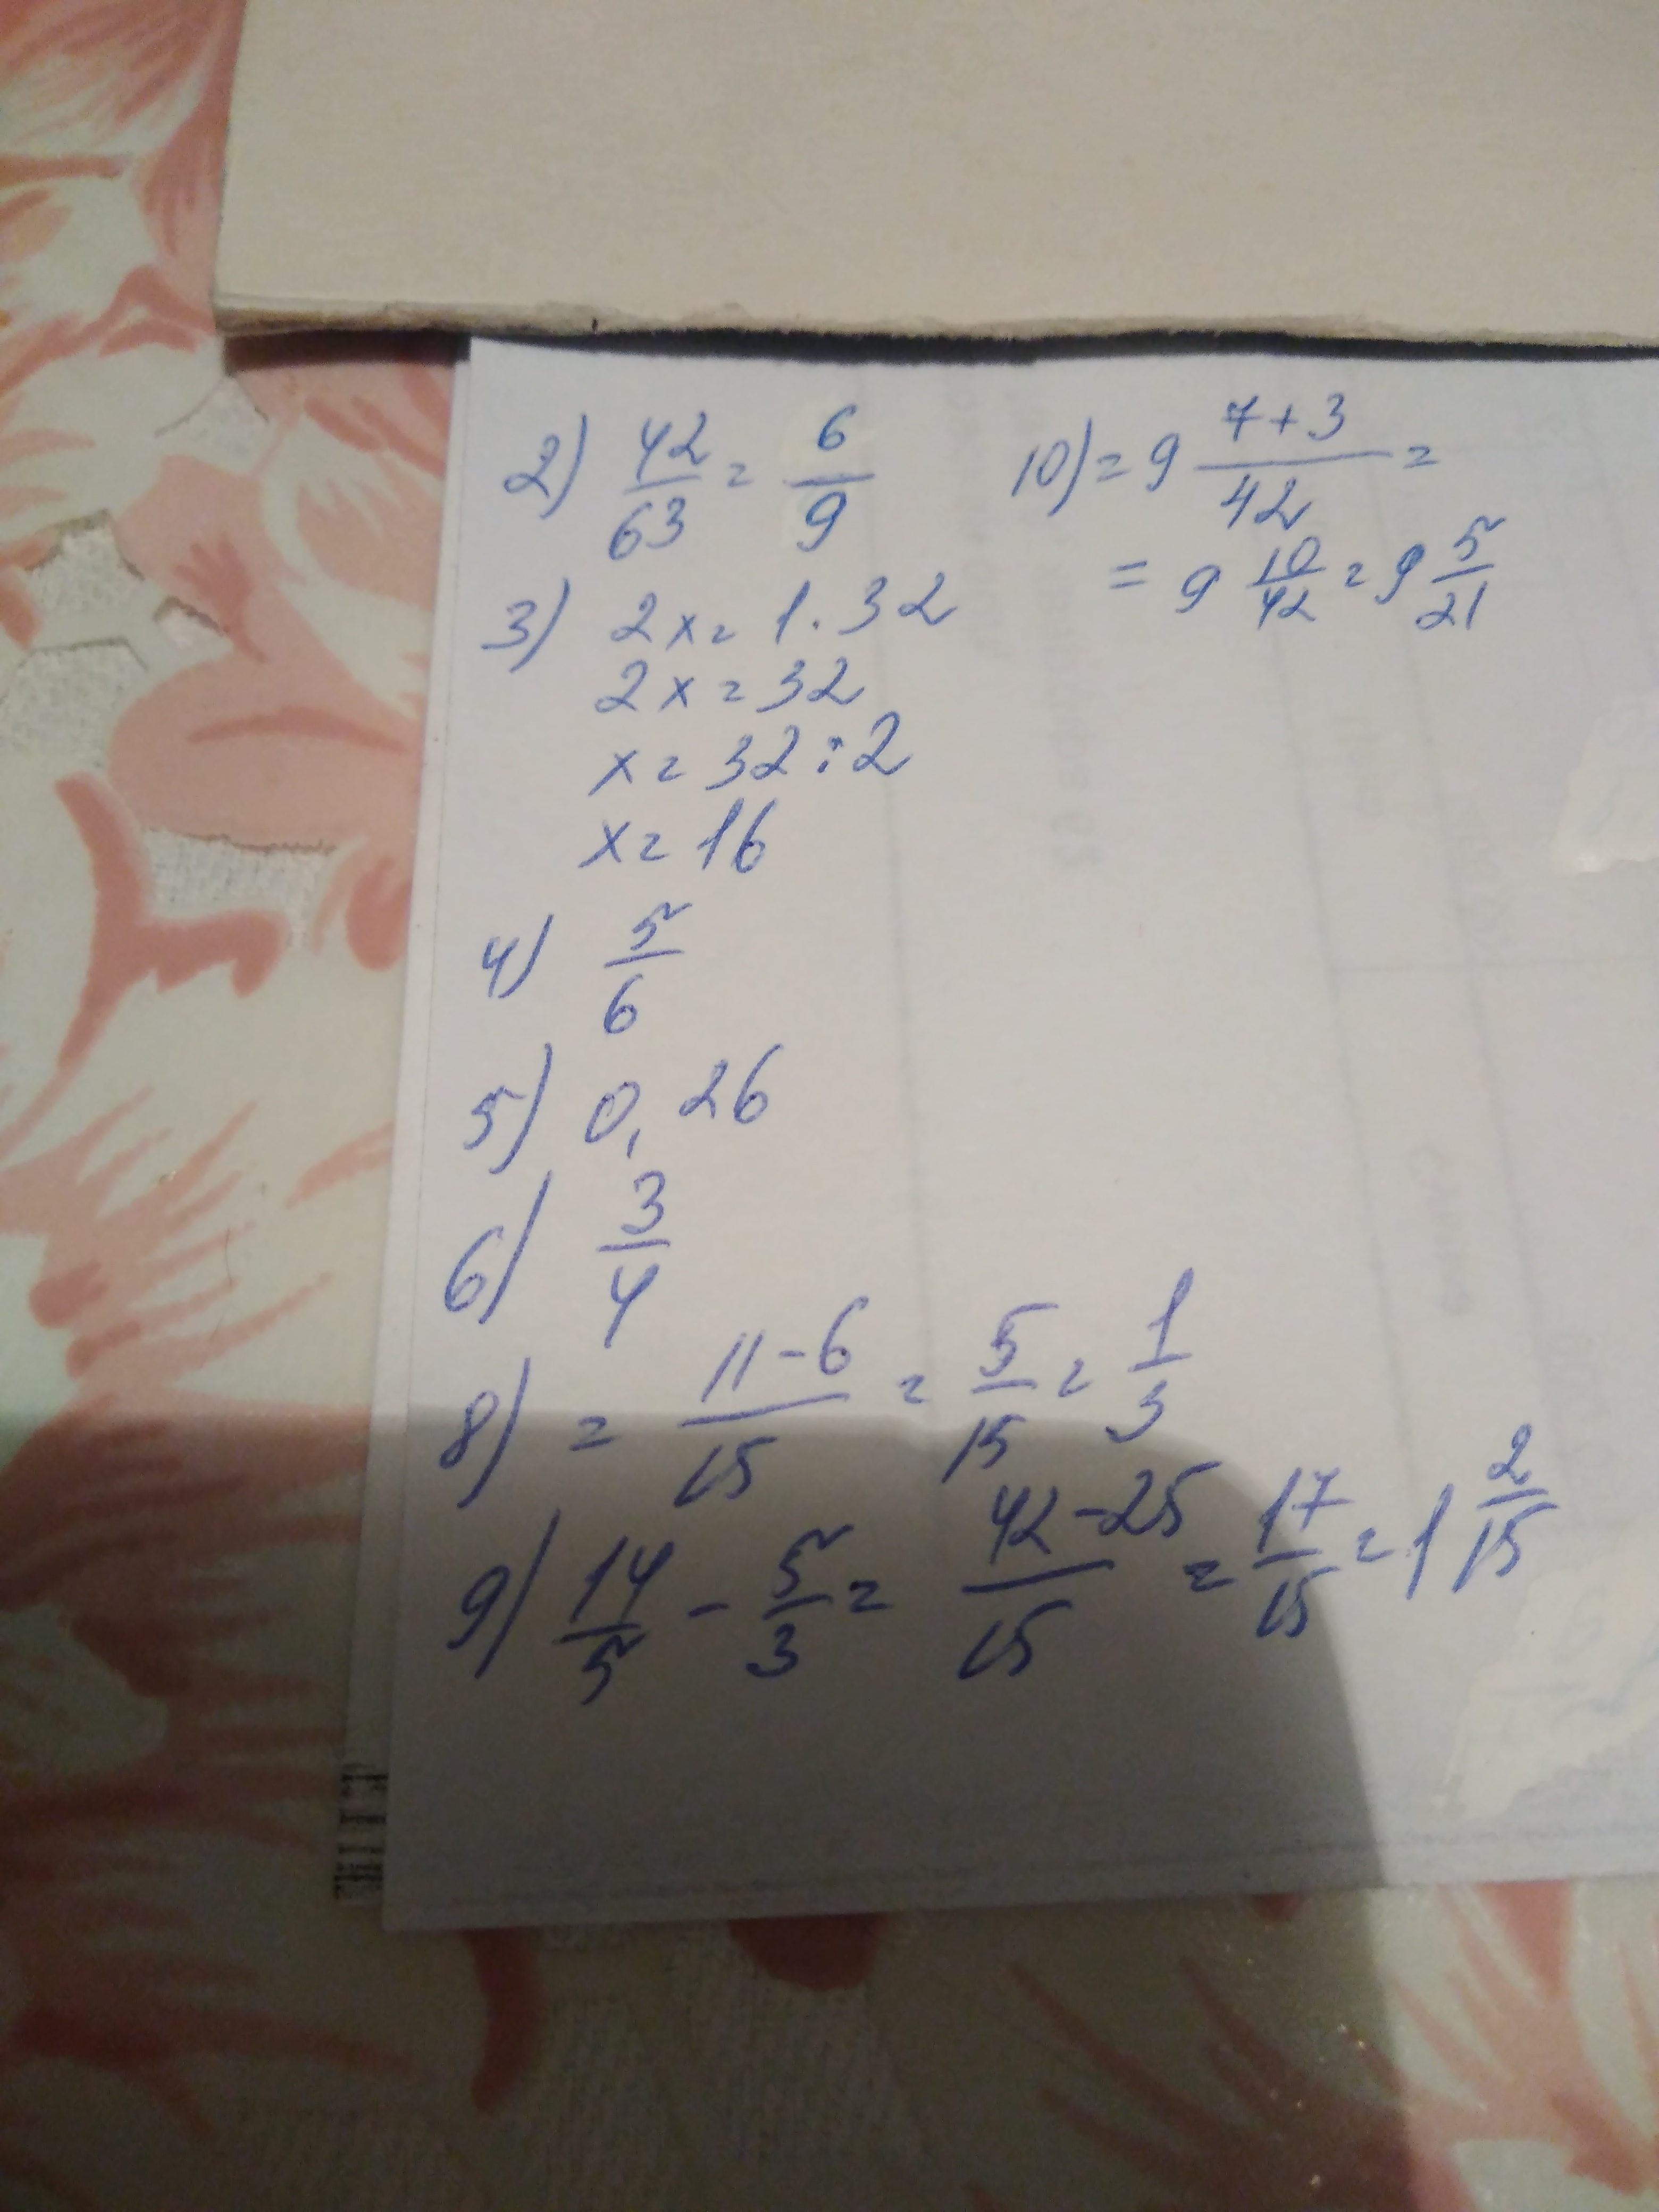 2) 42/63 = 6/9
3) 2x = 1 · 32
2x = 32
x = 32 : 2
x = 16
4) 5/6
5) 0,26
6) 3/4
8) = (11-6)/15 = 5/15 = 1/3
9) 14/5 - 5/3 = (42-25)/15 = 17/15 = 1 2/15
10) = 9 (7+3)/42 =
= 9 10/42 = 9 5/21